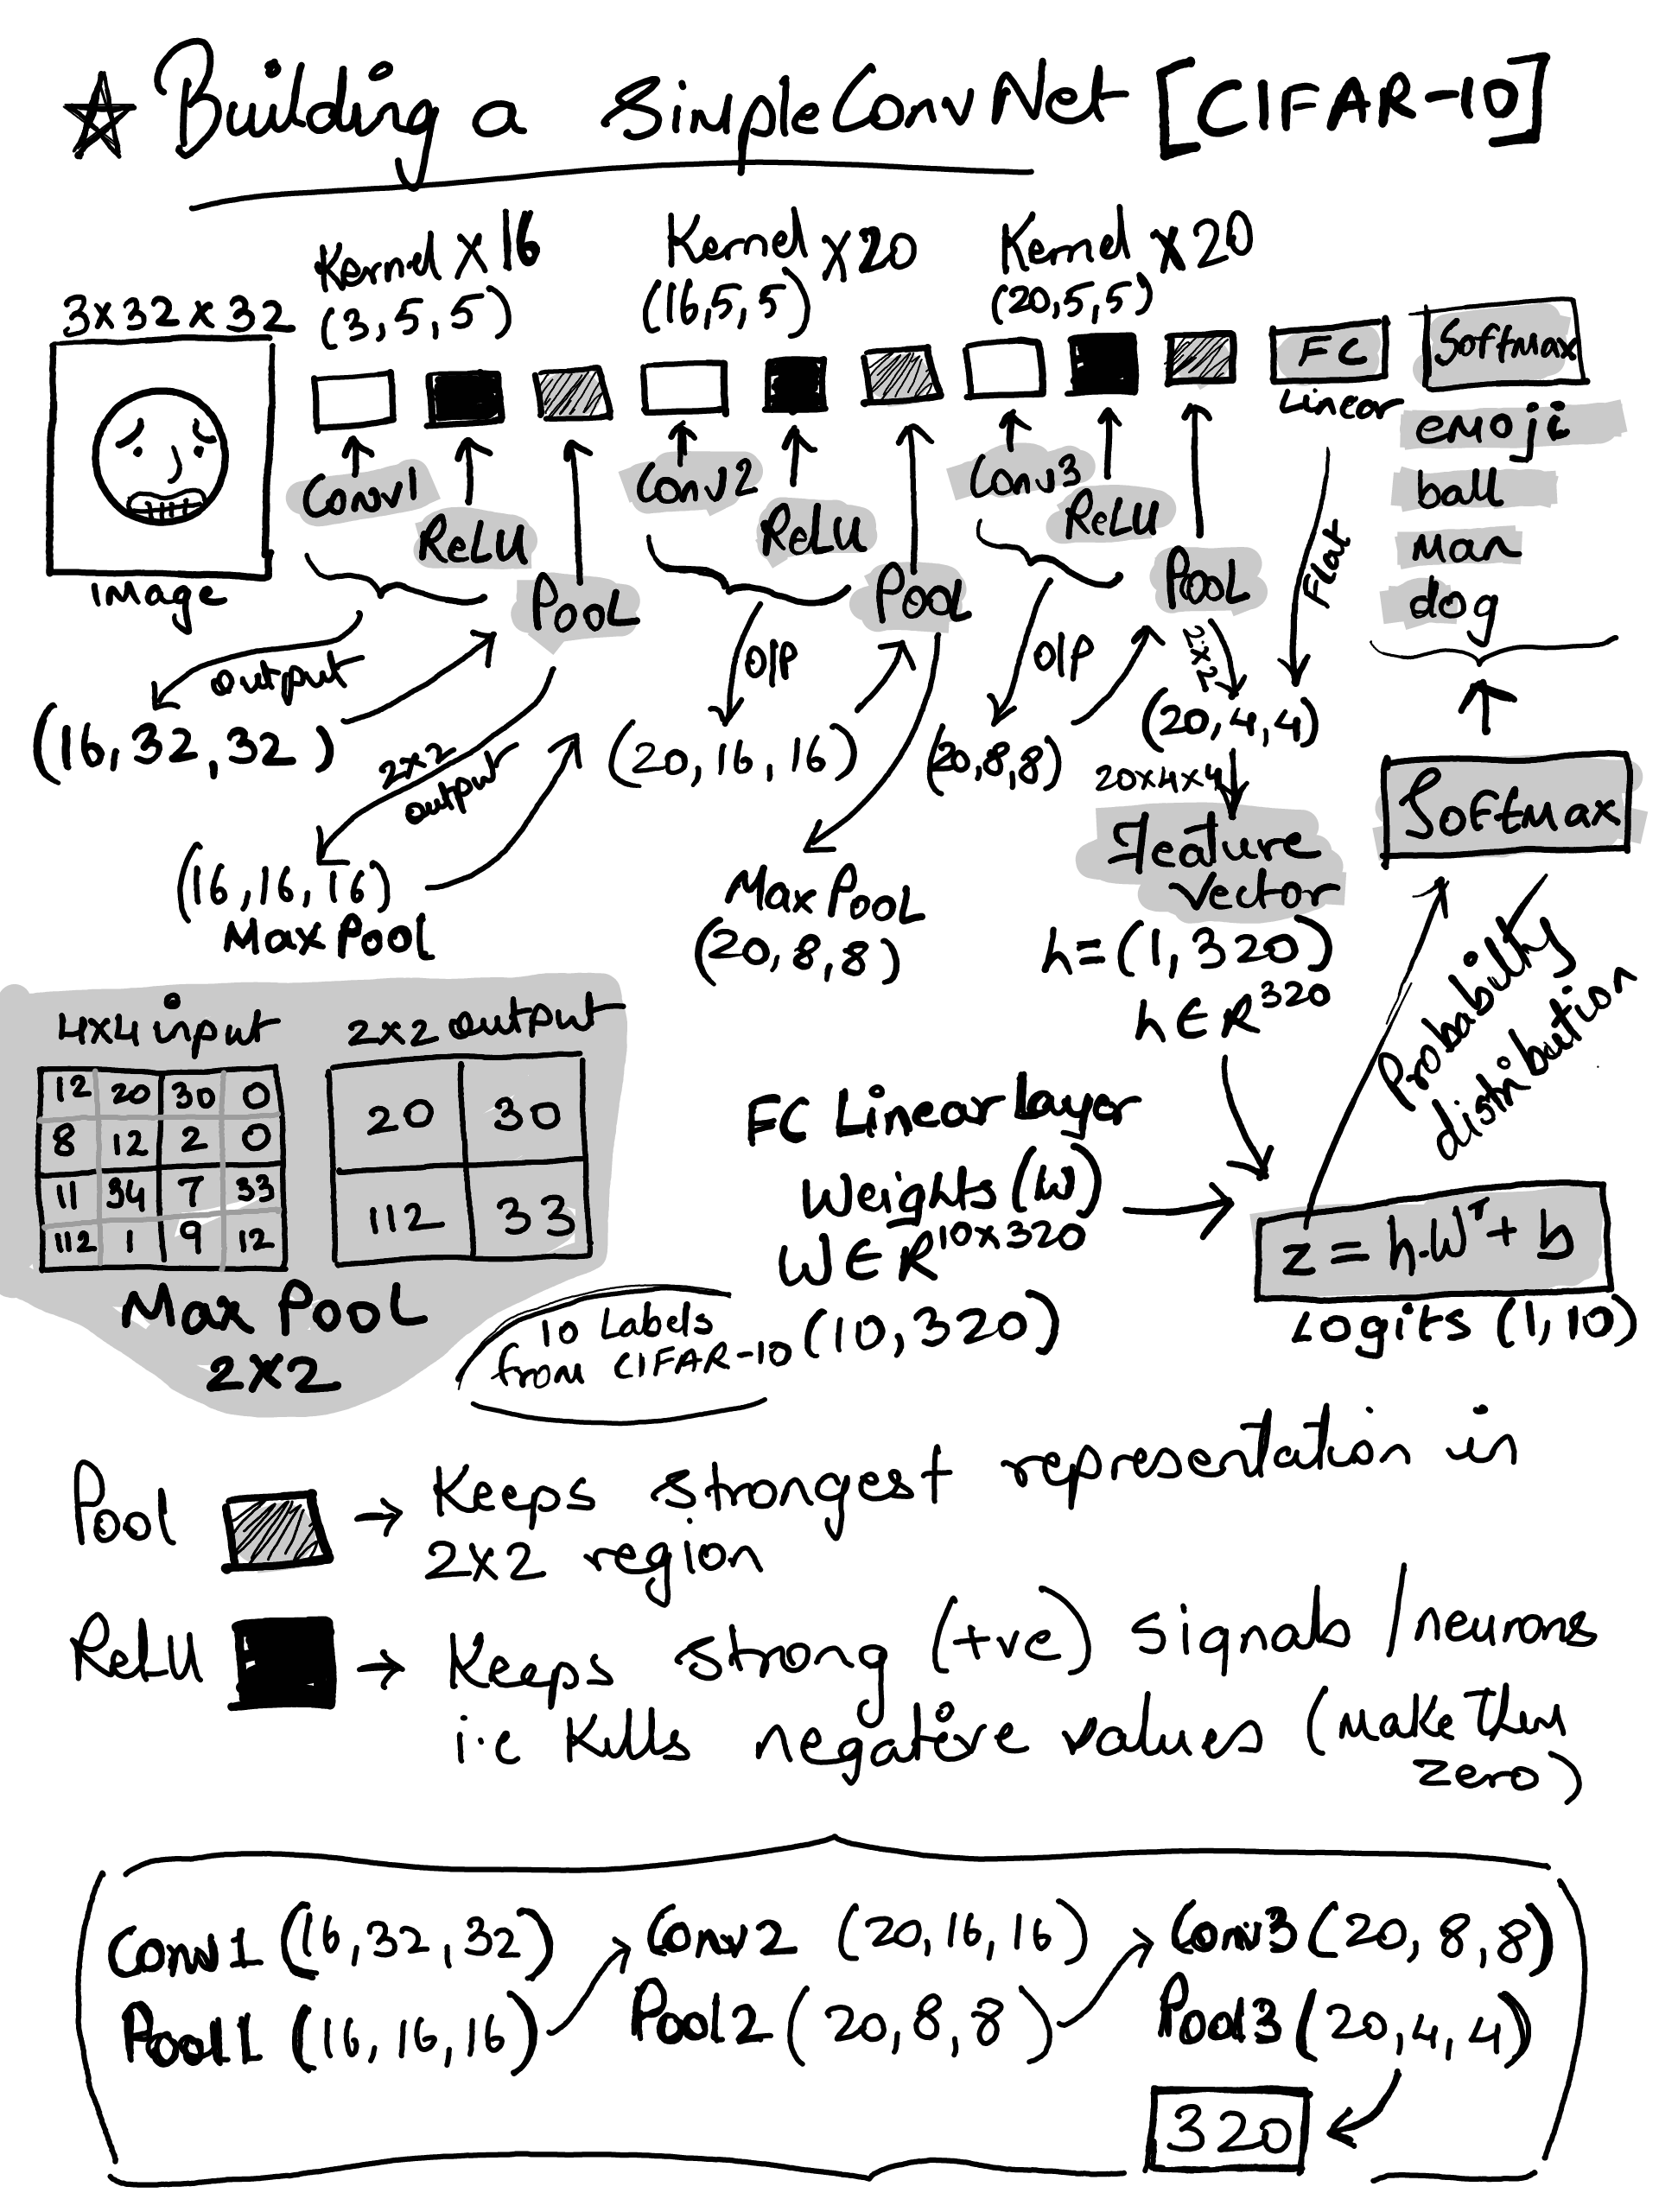 Building a SimpleConvNet [CIFAR-10]
Kernel X 16
(3, 5, 5)
Kernel X 20
(16, 5, 5)
Kernel X 20
(20, 5, 5)
3x32x32
Image
Conv1
ReLU
Pool
Conv2
ReLU
Pool
Conv3
ReLU
Pool
FC
Linear
Softmax
emoji
ball
man
dog
Flat
output
(16, 32, 32)
2x2
output
(16, 16, 16)
Max Pool
O/P
(20, 16, 16)
Max Pool
(20, 8, 8)
O/P
(20, 8, 8)
2x2
(20, 4, 4)
20x4x4
Feature
Vector
h=(1, 320)
h ∈ R^320
Softmax
Probabilty
distribution
4x4 input
12 20 30 0
8 12 2 0
11 34 7 33
112 1 9 12
2x2 output
20 30
112 33
Max Pool
2x2
FC Linear Layer
Weights (W)
W ∈ R^10x320
(10, 320)
10 Labels
from CIFAR-10
z = h.W^T + b
Logits (1, 10)
Pool → Keeps strongest representation in
2x2 region
ReLU → Keeps strong (+ve) signals / neurons
i.e Kills negative values (make them
zero)
Conv1 (16, 32, 32) Conv2 (20, 16, 16) Conv3 (20, 8, 8)
Pool1 (16, 16, 16) Pool2 (20, 8, 8) Pool3 (20, 4, 4)
320